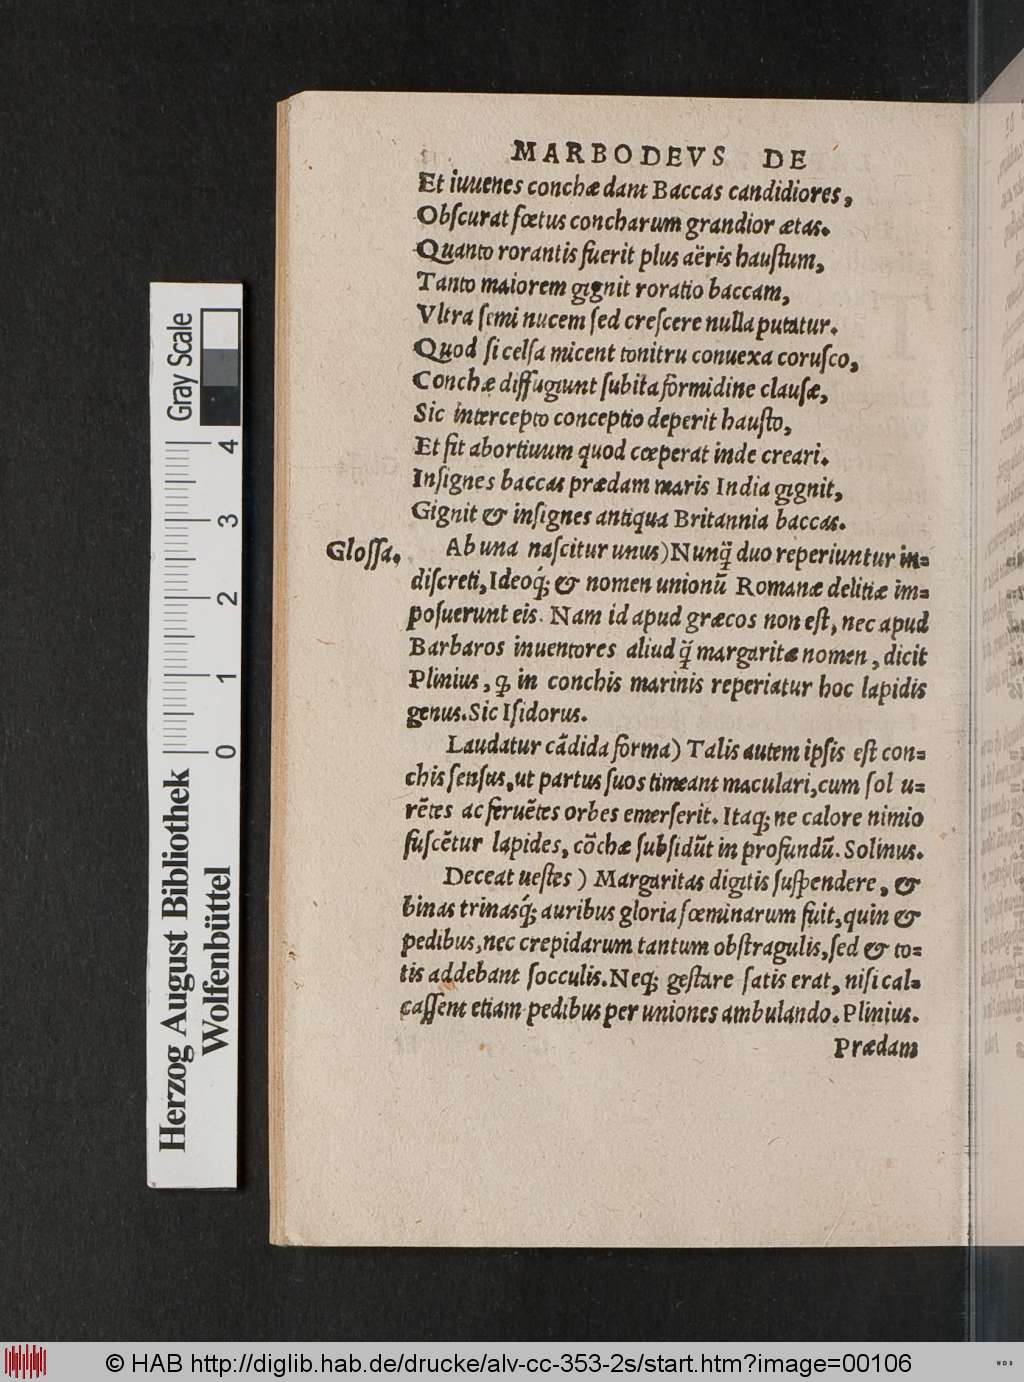 MARBODEVS DE
Et iuuenes conchæ dant Baccas candidiores,
Obſcurat fœtus concharum grandior ætas.
Quanto rorantis fuerit plus aëris hauſtum,
Tanto maiorem gignit roratio baccam,
Vltra ſemi nucem ſed creſcere nulla putatur.
Quod ſi celſa micent tonitru conuexa coruſco,
Conchæ diffugiunt ſubita formidine clauſæ,
Sic intercepto conceptio deperit hauſto,
Et fit abortiuum quod cœperat inde creari.
Inſignes baccas prædam maris India gignit,
Gignit & inſignes antiqua Britannia baccas.
Gloſſa. Ab una naſcitur unus) Nunq̃ duo reperiuntur in=
diſcreti, Ideoq́; & nomen unionũ Romanæ delitiæ im=
poſuerunt eis. Nam id apud græcos non eſt, nec apud
Barbaros inuentores aliud q̃ margaritæ nomen, dicit
Plinius, ꝙ in conchis marinis reperiatur hoc lapidis
genus. Sic Iſidorus.
Laudatur cãdida forma) Talis autem ipſis eſt con=
chis ſenſus, ut partus ſuos timeant maculari, cum ſol u=
rẽtes ac feruẽtes orbes emerſerit. Itaq; ne calore nimio
fuſcẽtur lapides, cõchæ ſubſidũt in profundũ. Solinus.
Deceat ueſtes) Margaritas digitis ſuſpendere, &
binas trinasq́; auribus gloria fœminarum fuit, quin &
pedibus, nec crepidarum tantum obſtragulis, ſed & to=
tis addebant ſocculis. Neq; geſtare ſatis erat, niſi cal=
caſſent etiam pedibus per uniones ambulando. Plinius.
Prædam
Gray Scale
4
3
2
1
0
Herzog August Bibliothek
Wolfenbüttel
© HAB http://diglib.hab.de/drucke/alv-cc-353-2s/start.htm?image=00106